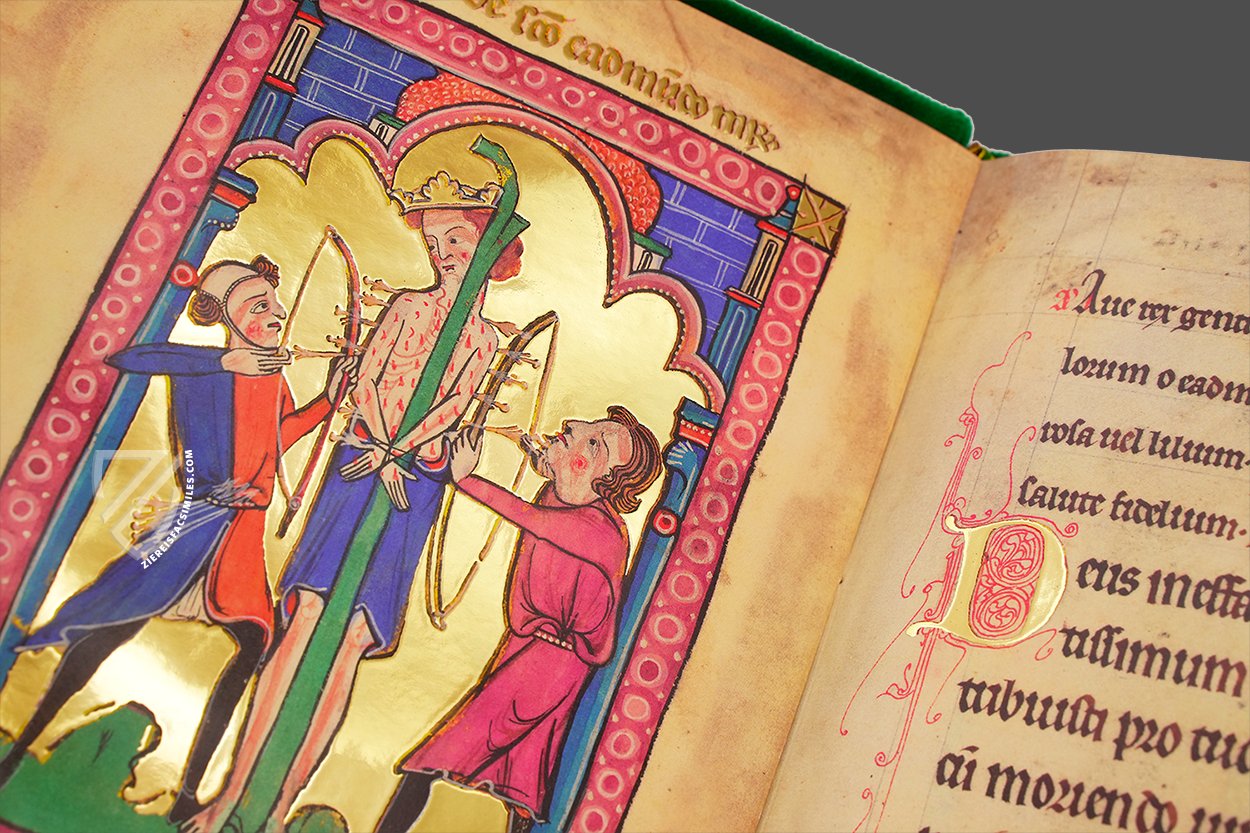 De sc̄o eadmūdo mr̄
ZIEREISFACSIMILES.COM
Aue rex gent
lorum o eadm
rosa uel lilium.
salute fidelium.
Deus ineffa
tissimum
tribuisti pro tu
cū moriendo